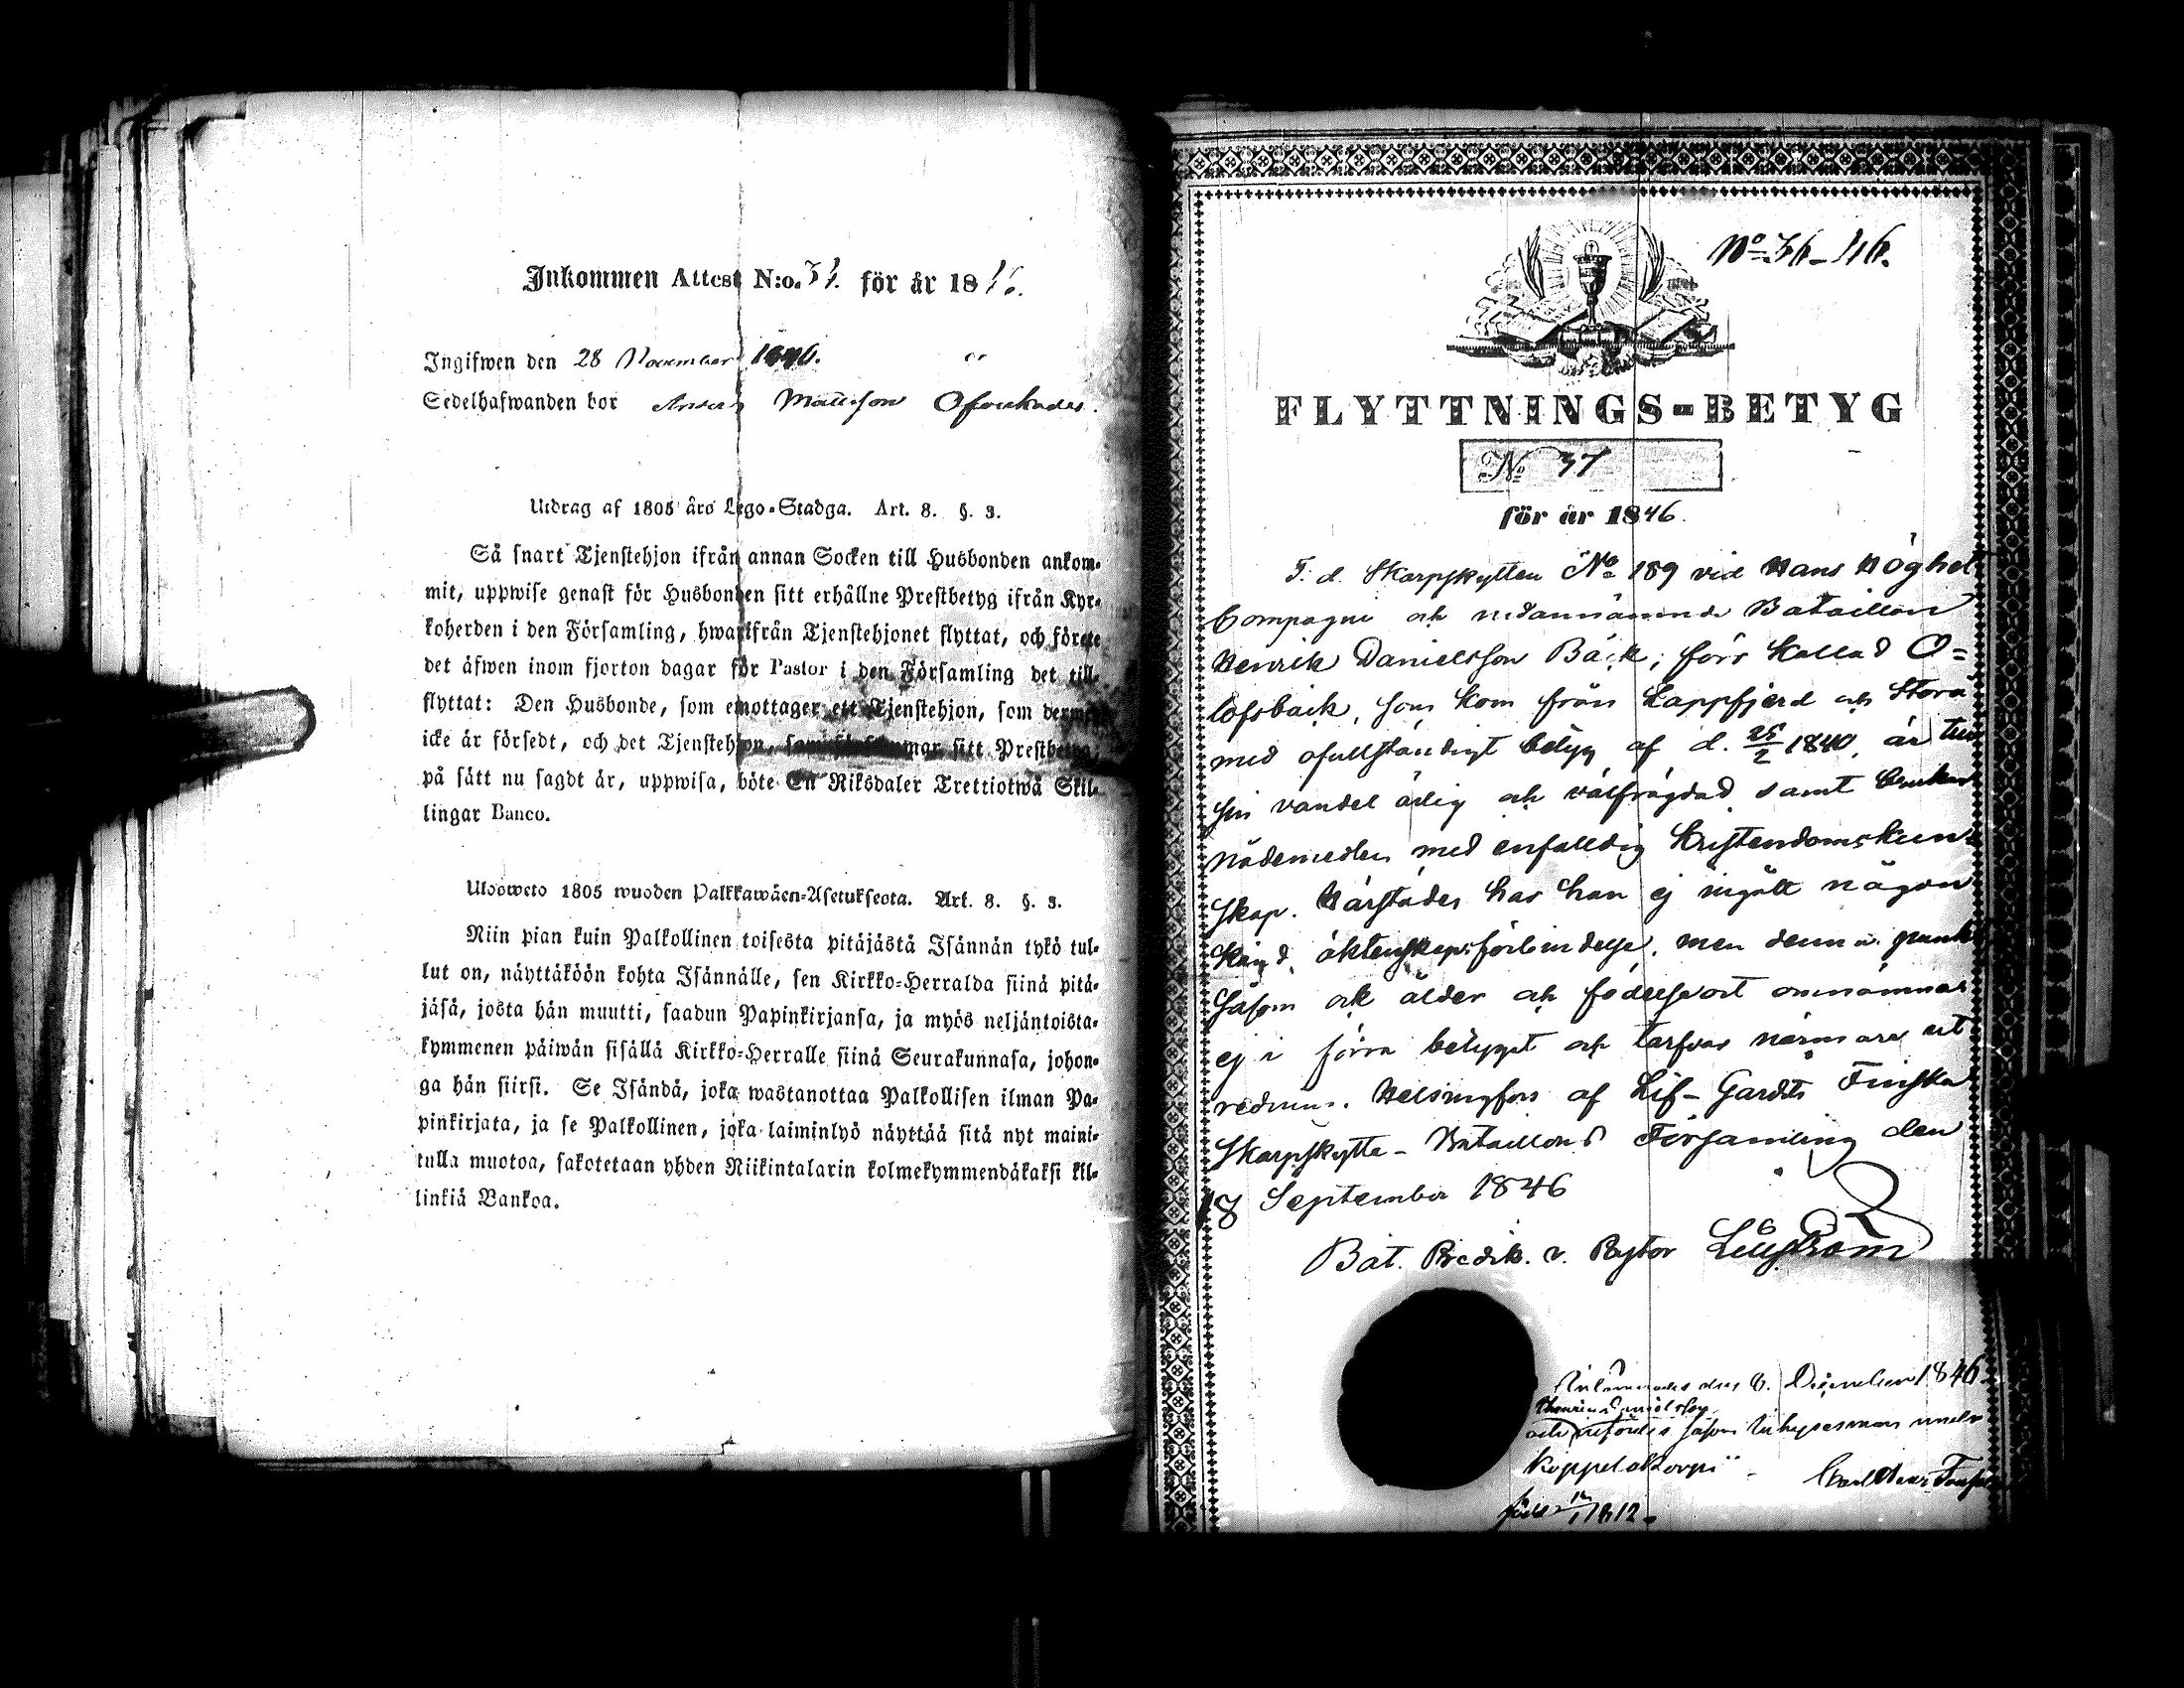 Inkommen Attest N:o. 34. för år 1846.
Ingifwen den 28 November 1846.
Sedelhafwanden bor Anders Mattsson
Utdrag af 1805 års Lego-Stadga. Art. 8. §. 3.
Så snart Tjenstehjon ifrån annan Socken till Husbonden ankom-
mit, uppwise genast för Husbonden sitt erhållne Prestbetyg ifrån Kyr-
koherden i den Församling, hwarifrån Tjenstehjonet flyttat, och förete
det äfwen inom fjorton dagar för Pastor i den Församling det till-
flyttat: Den Husbonde, som emottager ett Tjenstehjon, som dermed
icke är försedt, och det Tjenstehjon, som försummar sitt Prestbetyg,
på sätt nu sagdt är, uppwisa, böte En Riksdaler Trettiotwå Skil-
lingar Banco.
Ulosweto 1805 wuoden Palkkawäen-Asetuksesta. Art. 8. §. 3.
Niin pian kuin Palkollinen toisesta pitäjästä Isännän tykö tul-
lut on, näyttäköön kohta Isännälle, sen Kirkko-Herralda siinä pitä-
jäsä, josta hän muutti, saadun Papinkirjansa, ja myös neljäntoista-
kymmenen päiwän sisällä Kirkko-Herralle siinä Seurakunnasa, johon-
ga hän siirsi. Se Isändä, joka wastanottaa Palkollisen ilman Pa-
pinkirjata, ja se Palkollinen, joka laiminlyö näyttää sitä nyt maini-
tulla muotoa, sakotetaan yhden Riikintalarin kolmekymmendäkaksi kil-
linkiä Bankoa.
No 36-46.
FLYTTNINGS-BETYG
No 37
för år 1846.
F. d. Skarpskytten No 189 vid Hans Höghet
Compagnie och nedannämnde Bataillon
Henrik Danielsson Bäck, förr kallad O=
lofsbäck, som kom från Lappfjerd och Storå
med ofullständigt betyg af d. 25/2 1840, är till
sin vandel ärlig och välfrägdad samt brukar
nådemedlen med enfaldig Kristendomskun-
skap. Härstädes har han ej ingått någon
känd äktenskapsförbindelse, men denna punkt
såsom ock ålder och födelseort omnämnas
ej i förra betyget och tarfvar närmare ut
redning. Helsingfors af Lif-Gardets Finska
Skarpskytte-Bataillons Församling den
18 September 1846
Bat. Predik. v. Pastor Lilljström
den 6. December 1846.
såsom Inhysesman under
Koppelokorpi
född 1812.